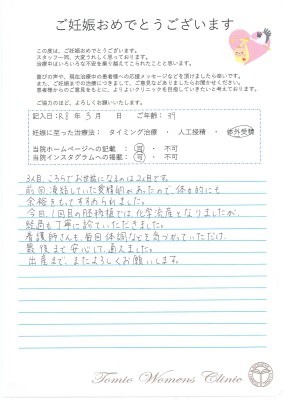 ご妊娠おめでとうございます
この度は、ご妊娠おめでとうございます。
スタッフ一同、大変うれしく思っております。
治療中はいろいろな不安を乗り越えてこられたことと思います。
喜びの声や、現在治療中の患者様への応援メッセージなどを頂けましたら幸いです。
また、ご妊娠までの治療につきまして、ご意見などありましたらお聞かせください。
患者様からのご意見をもとに、よりよいクリニックを目指していきたいと考えております。
ご協力のほど、よろしくお願いいたします。
記入日：R8 年 3 月 日 ご年齢：39
妊娠に至った治療法： タイミング治療 ・ 人工授精 ・ 体外受精
当院ホームページへの記載 ： 可 ・ 不可
当院インスタグラムへの掲載 ： 可 ・ 不可
3人目、こちらでお世話になるのは2人目です。
前回凍結していた受精卵があったので、体力的にも
余裕をもってすすめられました。
今回、1回目の胚移植では化学流産となりましたが、
経過も丁寧に診ていただきました。
看護師さんも、毎回体調などを気づかっていただけ、
最後まで安心して通えました。
出産まで、またよろしくお願いします。
Tomio Womens Clinic